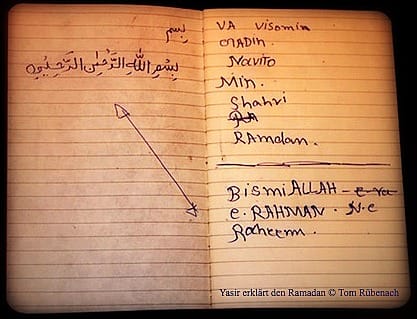 بسم
بِسْمِ اللّٰهِ الرَّحْمٰنِ الرَّحِيْمِ
VA Visomin
GADin
Navito
Min.
Shahri
RAmdan.
BismiALLAH - e va
e. RAHMAN. N.e
Raheem.
Yasir erklärt den Ramadan © Tom Rübenach